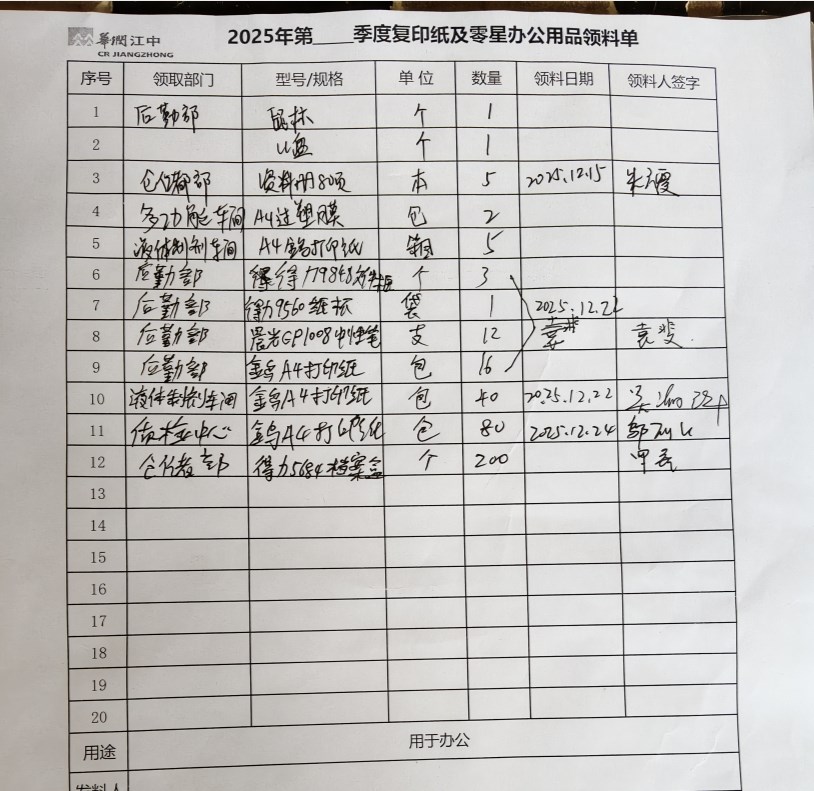 華潤江中
CR JIANGZHONG
2025年第____季度复印纸及零星办公用品领料单
序号 领取部门 型号/规格 单位 数量 领料日期 领料人签字
1 后勤部 鼠标 个 1
2 U盘 个 1
3 仓储部 资料册80页 本 5 2025.12.15
4 多功能车间 A4过塑膜 包 2
5 液体制剂车间 A4金鸟打印纸 箱 5
6 后勤部 得力79848 个 3
7 后勤部 得力9560纸杯 袋 1 2025.12.22
8 后勤部 晨光GP1008中性笔 支 12 袁斐
9 后勤部 金鸟A4打印纸 包 16
10 液体制剂车间 金鸟A4打印纸 包 40 2025.12.22
11 质检中心 金鸟A4打印纸 包 80 2025.12.24
12 得力5684档案盒 个 200
13
14
15
16
17
18
19
20
用途 用于办公
发料人